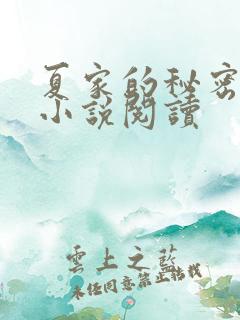 夏家的秘密
小說閱讀
雲上之藍
未經同意禁止轉載